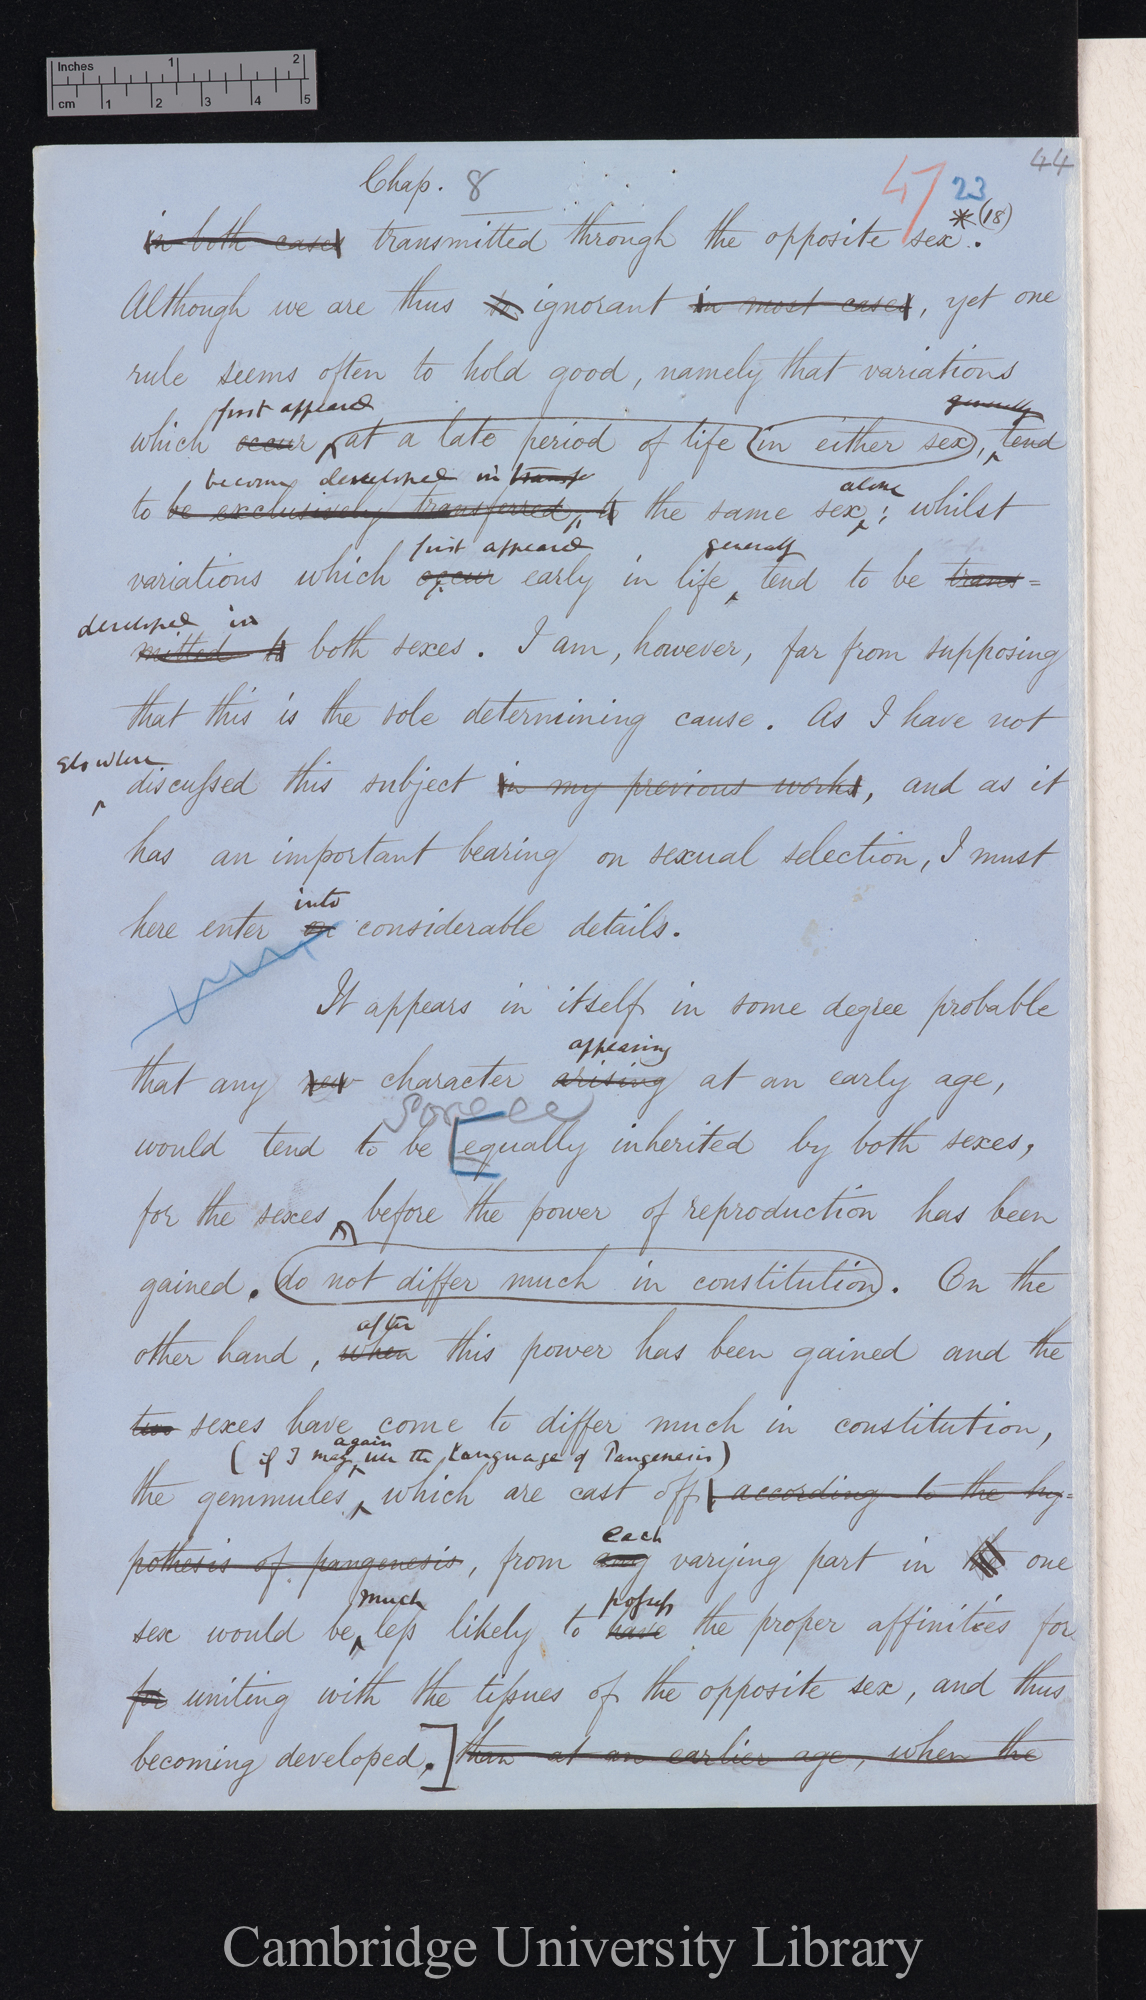 Inches 1 2
cm 1 2 3 4 5
44
Chap. 8 47 23
in both cases transmitted through the opposite sex*(18).
Although we are thus ignorant in most cases, yet one
rule seems often to hold good, namely that variations
first appeared generally
which occur at a late period of life in either sex, tend
become developed in transf alone
to be exclusively transferred, to the same sex; whilst
first appeared generally
variations which occur early in life, tend to be trans=
developed in
mitted to both sexes. I am, however, far from supposing
that this is the sole determining cause. As I have not
elsewhere
discussed this subject in my previous works, and as it
has an important bearing on sexual selection, I must
into
here enter on considerable details.
It appears in itself in some degree probable
appearing
that any new character arising at an early age,
would tend to be [equally inherited by both sexes,
for the sexes before the power of reproduction has been
gained. do not differ much in constitution. On the
after
other hand, when this power has been gained and the
two sexes have come to differ much in constitution,
again
(if I may use the language of Pangenesis)
the gemmules, which are cast off, according to the hy=
each
pothesis of pangenesis, from any varying part in the one
much possess
sex would be less likely to have the proper affinities for
for uniting with the tissues of the opposite sex, and thus
becoming developed.] than at an earlier age, when the
Cambridge University Library